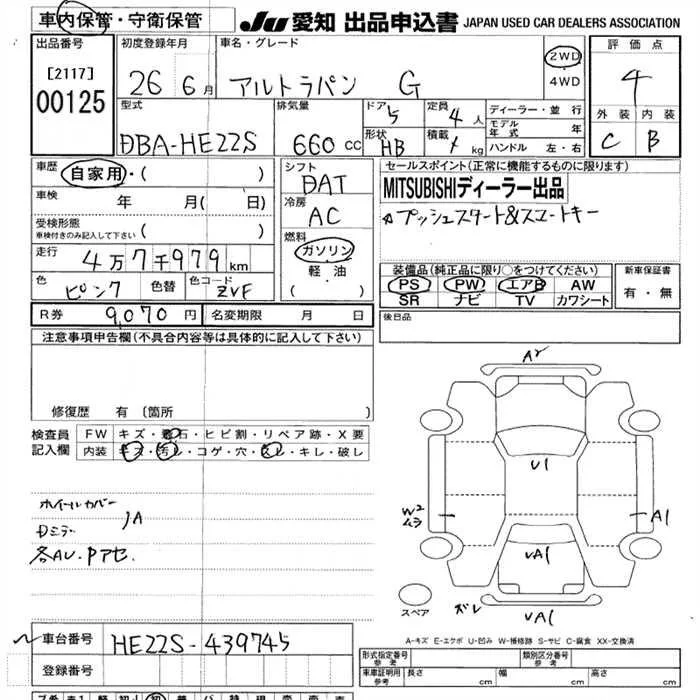 車内保管・守衛保管
JU 愛知 出品申込書 JAPAN USED CAR DEALERS ASSOCIATION
出品番号
[2117]
00125
初度登録年月
26 6月
車名・グレード
アルトラパン G
2WD
4WD
評価点
4
外装 内装
C B
型式
DBA-HE22S
排気量
660 cc
ドア 5
形状 HB
定員 4 人
積載 kg
ディーラー・並行
モデル年式 年
ハンドル 左・右
車歴 自家用・( )
車検 年 月( 日)
受検形態 ( )
車検付きのみ記入して下さい
走行 4万7千979km
色 ピンク 色替 色コード ZVF
シフト
DAT
冷房
AC
燃料
ガソリン
軽油
( ・ )
セールスポイント(正常に機能するものに限ります)
MITSUBISHIディーラー出品
☆プッシュスタート&スマートキー
装備品(純正品に限り○をつけてください)
PS PW エアB AW
SR ナビ TV カワシート
新車保証書
有・無
R券 9,070円 名変期限 月 日
後日品
注意事項申告欄(不具合内容等は具体的に記入して下さい)
修復歴 有 〔箇所
検査員記入欄
FW キズ・飛石・ヒビ割・リペア跡・X要
内装 キズ・汚レ・コゲ・穴・スレ・キレ・破し
ホイールカバー
Dミラー 1A
各AU.Pアセ.
A2
U1
W2
ムラ
A1
UA1
スペア
ズレ UA1
A-キズ E-エクボ U-凹み W-補修跡 S-サビ C-腐食 XX-交換済
車台番号 HE22S-439745
登録番号
型式指定番号 参考
類別区分番号 参考
車庫証明用 参考 長さ cm 幅 cm 高さ cm